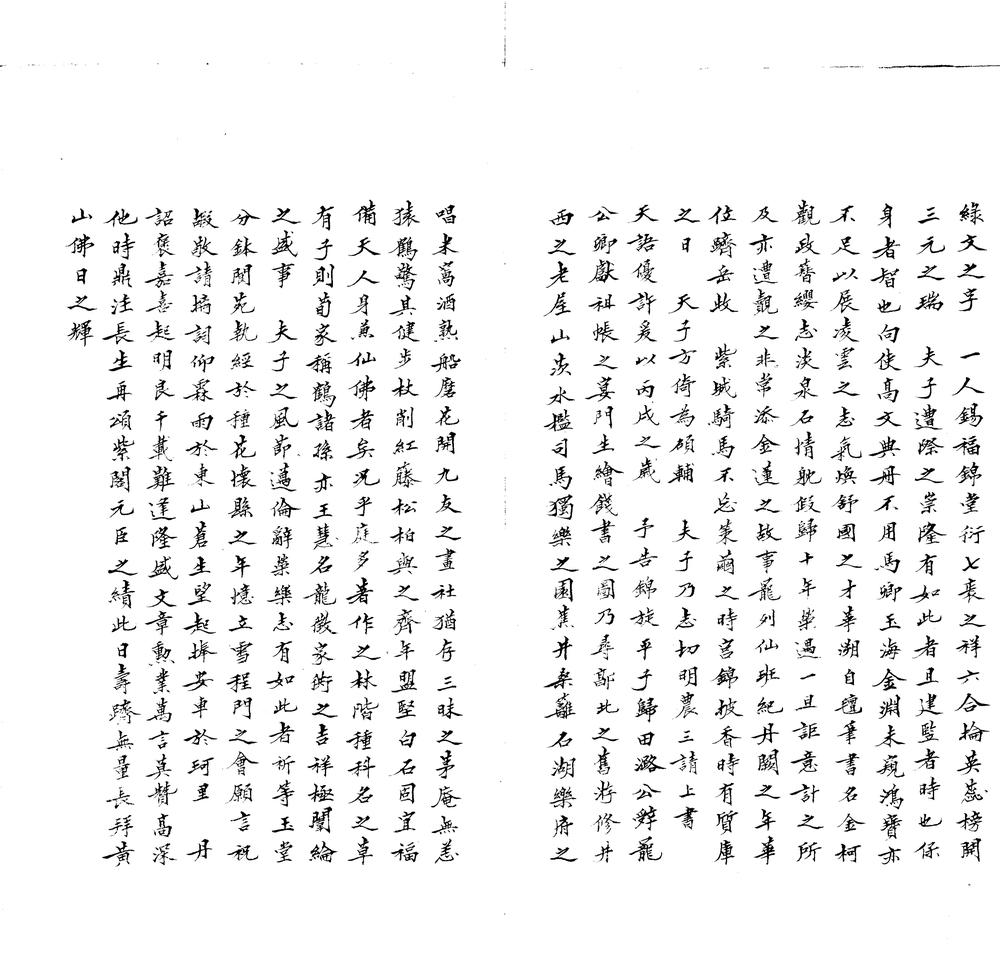 綠文之字　一人錫福錦堂衍七袠之祥六合掄英蕊榜開
三元之瑞　夫子遭際之崇隆有如此者且建監者時也保
身者智也向使高文典冊不用馬卿玉海金淵未窺鴻寶亦
不足以展凌雲之志氣煥舒國之才華溯自氊筆書名金柯
觀政簪纓志淡泉石情躭假歸十年榮遇一旦詎意計之所
及亦遭覯之非常添金蓮之故事羆列仙班紀丹闕之年華
位躋岳牧　紫城騎馬不忘策繭之時宮錦披香時有質庫
之日　天子方倚為碩輔　夫子乃志切明農三請上書
天語優許爰以丙戌之歲　予告錦旋平子歸田潞公辭寵
公卿獻祖帳之宴門生繪餞書之圖乃尋鄗北之舊將修井
西之老屋山茨水檻司馬獨樂之園蕉井桑籬石湖樂府之
唱末萬酒熟船唐花開九友之畫社猶存三昧之茅庵無恙
猿鶴驚其健步杖削紅藤松柏與之齊年盟堅白石固宜福
備天人身兼仙佛者矣况乎庭多著作之林階種科名之草
有子則荀家稱鶴諸孫亦王慧名龍徵家衖之吉祥極閨綸
之盛事　夫子之風節邁倫辭榮樂志有如此者祈等玉堂
分鉢閬苑執經於種花懷縣之年憶立雪程門之會願言祝
嘏敬請摛詞仰霖雨於東山蒼生望起捧安車於珂里　丹
詔褒嘉喜起明良千載難逢隆盛文章勳業萬言莫贊高深
他時鼎注長生再頌紫閣元臣之績此日壽躋無量長拜黃
山佛日之輝